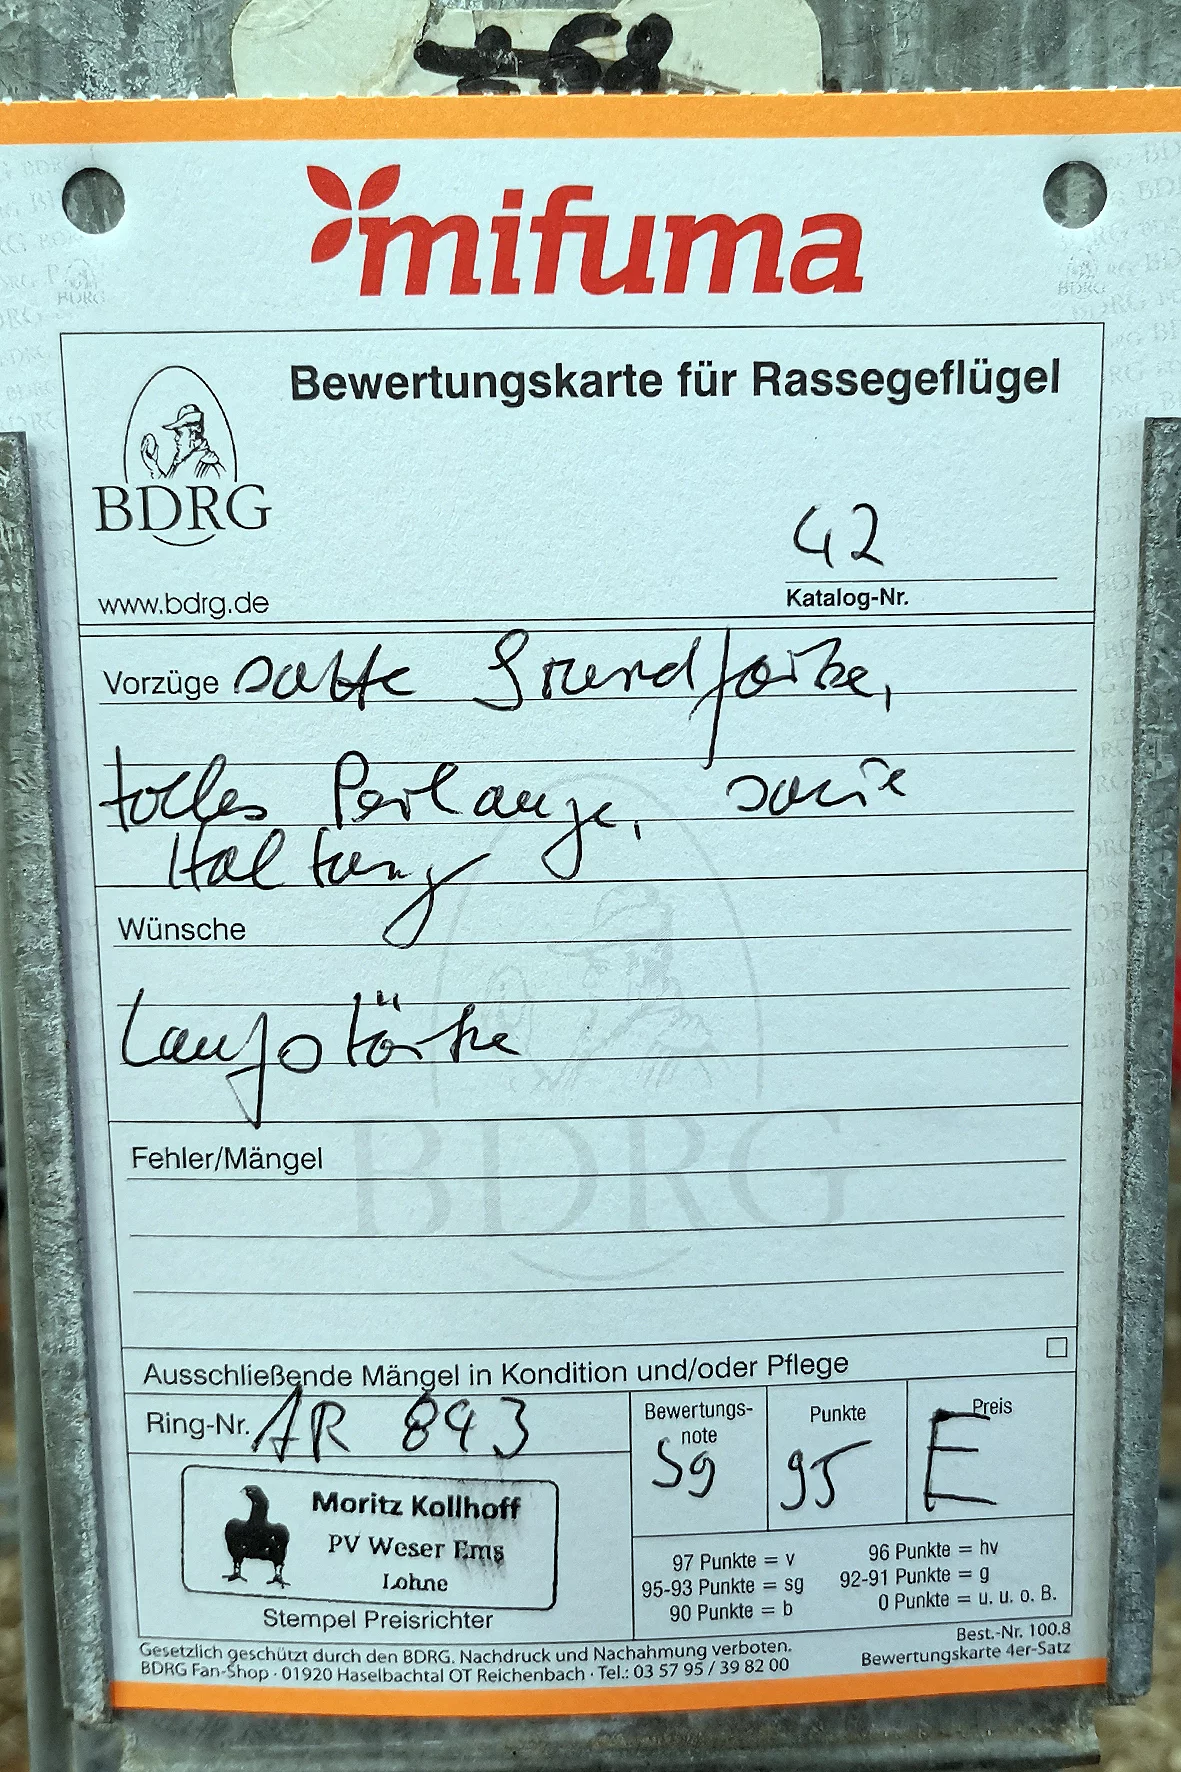 mifuma
Bewertungskarte für Rassegeflügel
BDRG
www.bdrg.de
42
Katalog-Nr.
Vorzüge satte Grundfarbe,
tolles Perlauge, sowie
Haltung
Wünsche
Laufstärke
Fehler/Mängel
BDRG
Ausschließende Mängel in Kondition und/oder Pflege
Ring-Nr. AR 843
Bewertungs-
note
Sg
Punkte
95
Preis
E
Moritz Kollhoff
PV Weser Ems
Lohne
Stempel Preisrichter
97 Punkte = v
95-93 Punkte = sg
90 Punkte = b
96 Punkte = hv
92-91 Punkte = g
0 Punkte = u. u. o. B.
Gesetzlich geschützt durch den BDRG. Nachdruck und Nachahmung verboten.
BDRG Fan-Shop · 01920 Haselbachtal OT Reichenbach · Tel.: 03 57 95 / 39 82 00
Best.-Nr. 100.8
Bewertungskarte 4er-Satz